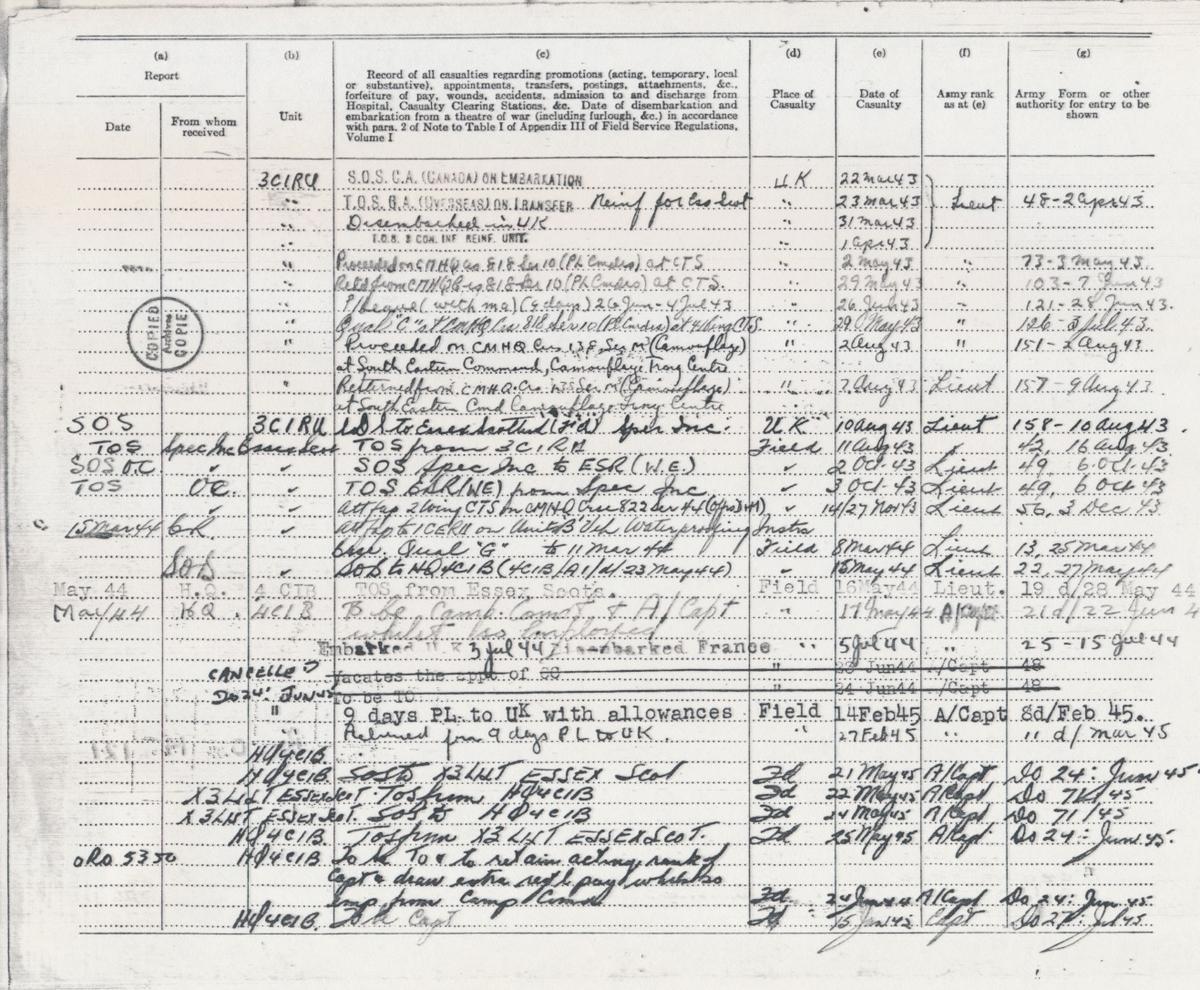 (a) (b) (c) (d) (e) (f) (g)
Report
Date
From whom received
Unit
Record of all casualties regarding promotions (acting, temporary, local
or substantive), appointments, transfers, postings, attachments, &c.,
forfeiture of pay, wounds, accidents, admission to and discharge from
Hospital, Casualty Clearing Stations, &c. Date of disembarkation and
embarkation from a theatre of war (including furlough, &c.) in accordance
with para. 2 of Note to Table I of Appendix III of Field Service Regulations,
Volume I
Place of Casualty
Date of Casualty
Army rank as at (e)
Army Form or other authority for entry to be shown
3CIRU S.O.S. C.A. (CANADA) ON EMBARKATION UK 22 Mar 43
" T.O.S. C.A. (OVERSEAS) ON TRANSFER Reinf for Ess Scot " 23 Mar 43 Lieut 48-2 Apr 43
" Disembarked in UK " 31 Mar 43
" T.O.S. 3 CDN. INF REINF. UNIT. " 1 Apr 43
" Proceeded on CMHQ Crs 818 Ser 10 (Pl Cmdrs) at CTS " 2 May 43 " 73-3 May 43
" Retd from CMHQ Crs 818 Ser 10 (Pl Cmdrs) at CTS. " 29 May 43 " 103-7 Jun 43
" P/Leave (with ma) (9 days) 26 Jun - 4 Jul 43 " 26 Jun 43 " 121-28 Jun 43.
" Qual "C" at CMHQ Crs 818 Ser 10 (Pl Cmdrs) at CTS. " 29 May 43 " 126-3 Jul 43.
" Proceeded on CMHQ Crs 138 Ser M (Camouflage) " 2 Aug 43 " 151-2 Aug 43
at South Eastern Command, Camouflage Trng Centre
" Returned from CMHQ Crs Ser M (Camouflage) " 7 Aug 43 Lieut 157-9 Aug 43
at South Eastern Cmd Camouflage Trng Centre
COPIED
Archives
COPIE
SOS 3CIRU to Essex Scottish (F'd) Spec Inc. UK 10 Aug 43 Lieut 158-10 Aug 43
TOS Spec Inc Essex Scot TOS from 3CIRU Field 11 Aug 43 " 42, 16 Aug 43
SOS OC ✓ SOS Spec Inc to ESR (W.E.) ✓ 2 Oct 43 Lieut 49, 6 Oct 43
TOS OC. ✓ TOS ESR(WE) from Spec Inc ✓ 3 Oct 43 Lieut 49, 6 Oct 43
✓ Att fap 2 Wing CTS on CMHQ Crse 822 Ser 44 ✓ 14/27 Nov 43 Lieut 56, 3 Dec 43
15 Mar 44 CR ✓ Att fap to 1 CERU on Units "B" Veh Waterproofing Instrs
Crse. Qual "G" to 11 Mar 44 Field 8 Mar 44 Lieut 13, 25 Mar 44
SOS ✓ SOS to HQ 4CIB (4CIB/A1/d/23 May 44) ✓ 15 May 44 Lieut 22, 27 May 44
May. 44 H.Q. 4 CIB TOS from Essex Scots. Field 16 May 44 Lieut. 19 d/28 May 44
May/44 HQ 4CIB To be Camp Comdt & A/Capt " 17 May 44 A/Capt 21 d/22 Jun 4
whilst so employed
Embarked U.K 3 Jul 44 Disembarked France " 5 Jul 44 " 25-15 Jul 44
CANCELLED Vacates the appt of CC " 23 Jun 44 A/Capt 48
Do 24: JUN 45 To be TO " 24 Jun 44 A/Capt 48
" 9 days PL to UK with allowances Field 14 Feb 45 A/Capt 8d/Feb 45.
" Returned from 9 days PL to UK. " 27 Feb 45 " 11 d/Mar 45
HQ 4CIB.
HQ 4CIB. SOS to X3 LIST ESSEX Scot Fd 21 May 45 A/Capt Do 24: Jun 45.
X3 LIST ESSEX Scot. TOS from HQ 4CIB Fd 22 May 45 A/Capt Do 71/45
X3 LIST ESSEX Scot. SOS to HQ 4CIB Fd 24 May 45 A/Capt Do 71/45
HQ 4CIB. TOS from X3 LIST ESSEX SCOT. Fd 25 May 45 A/Capt Do 24: Jun 45.
ORO 5350 HQ 4CIB To be TO & to retain acting rank of
Capt & draw extra regtl pay whilst so
emp from Camp Comm Fd 24 Jun 44 A/Capt Do 24: Jun 45
HQ 4CIB. To be Capt Fd 15 Jun 45 Capt Do 27: Jul 45